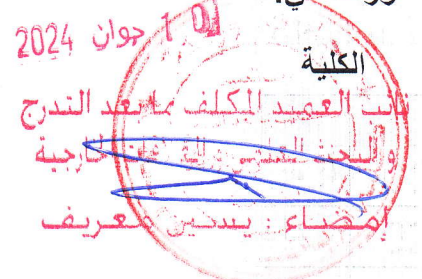 10 جوان 2024
الكلية
نائب العميد المكلف بما بعد التدرج
والبحث العلمي والعلاقات الخارجية
إمضاء : ياسين معريف